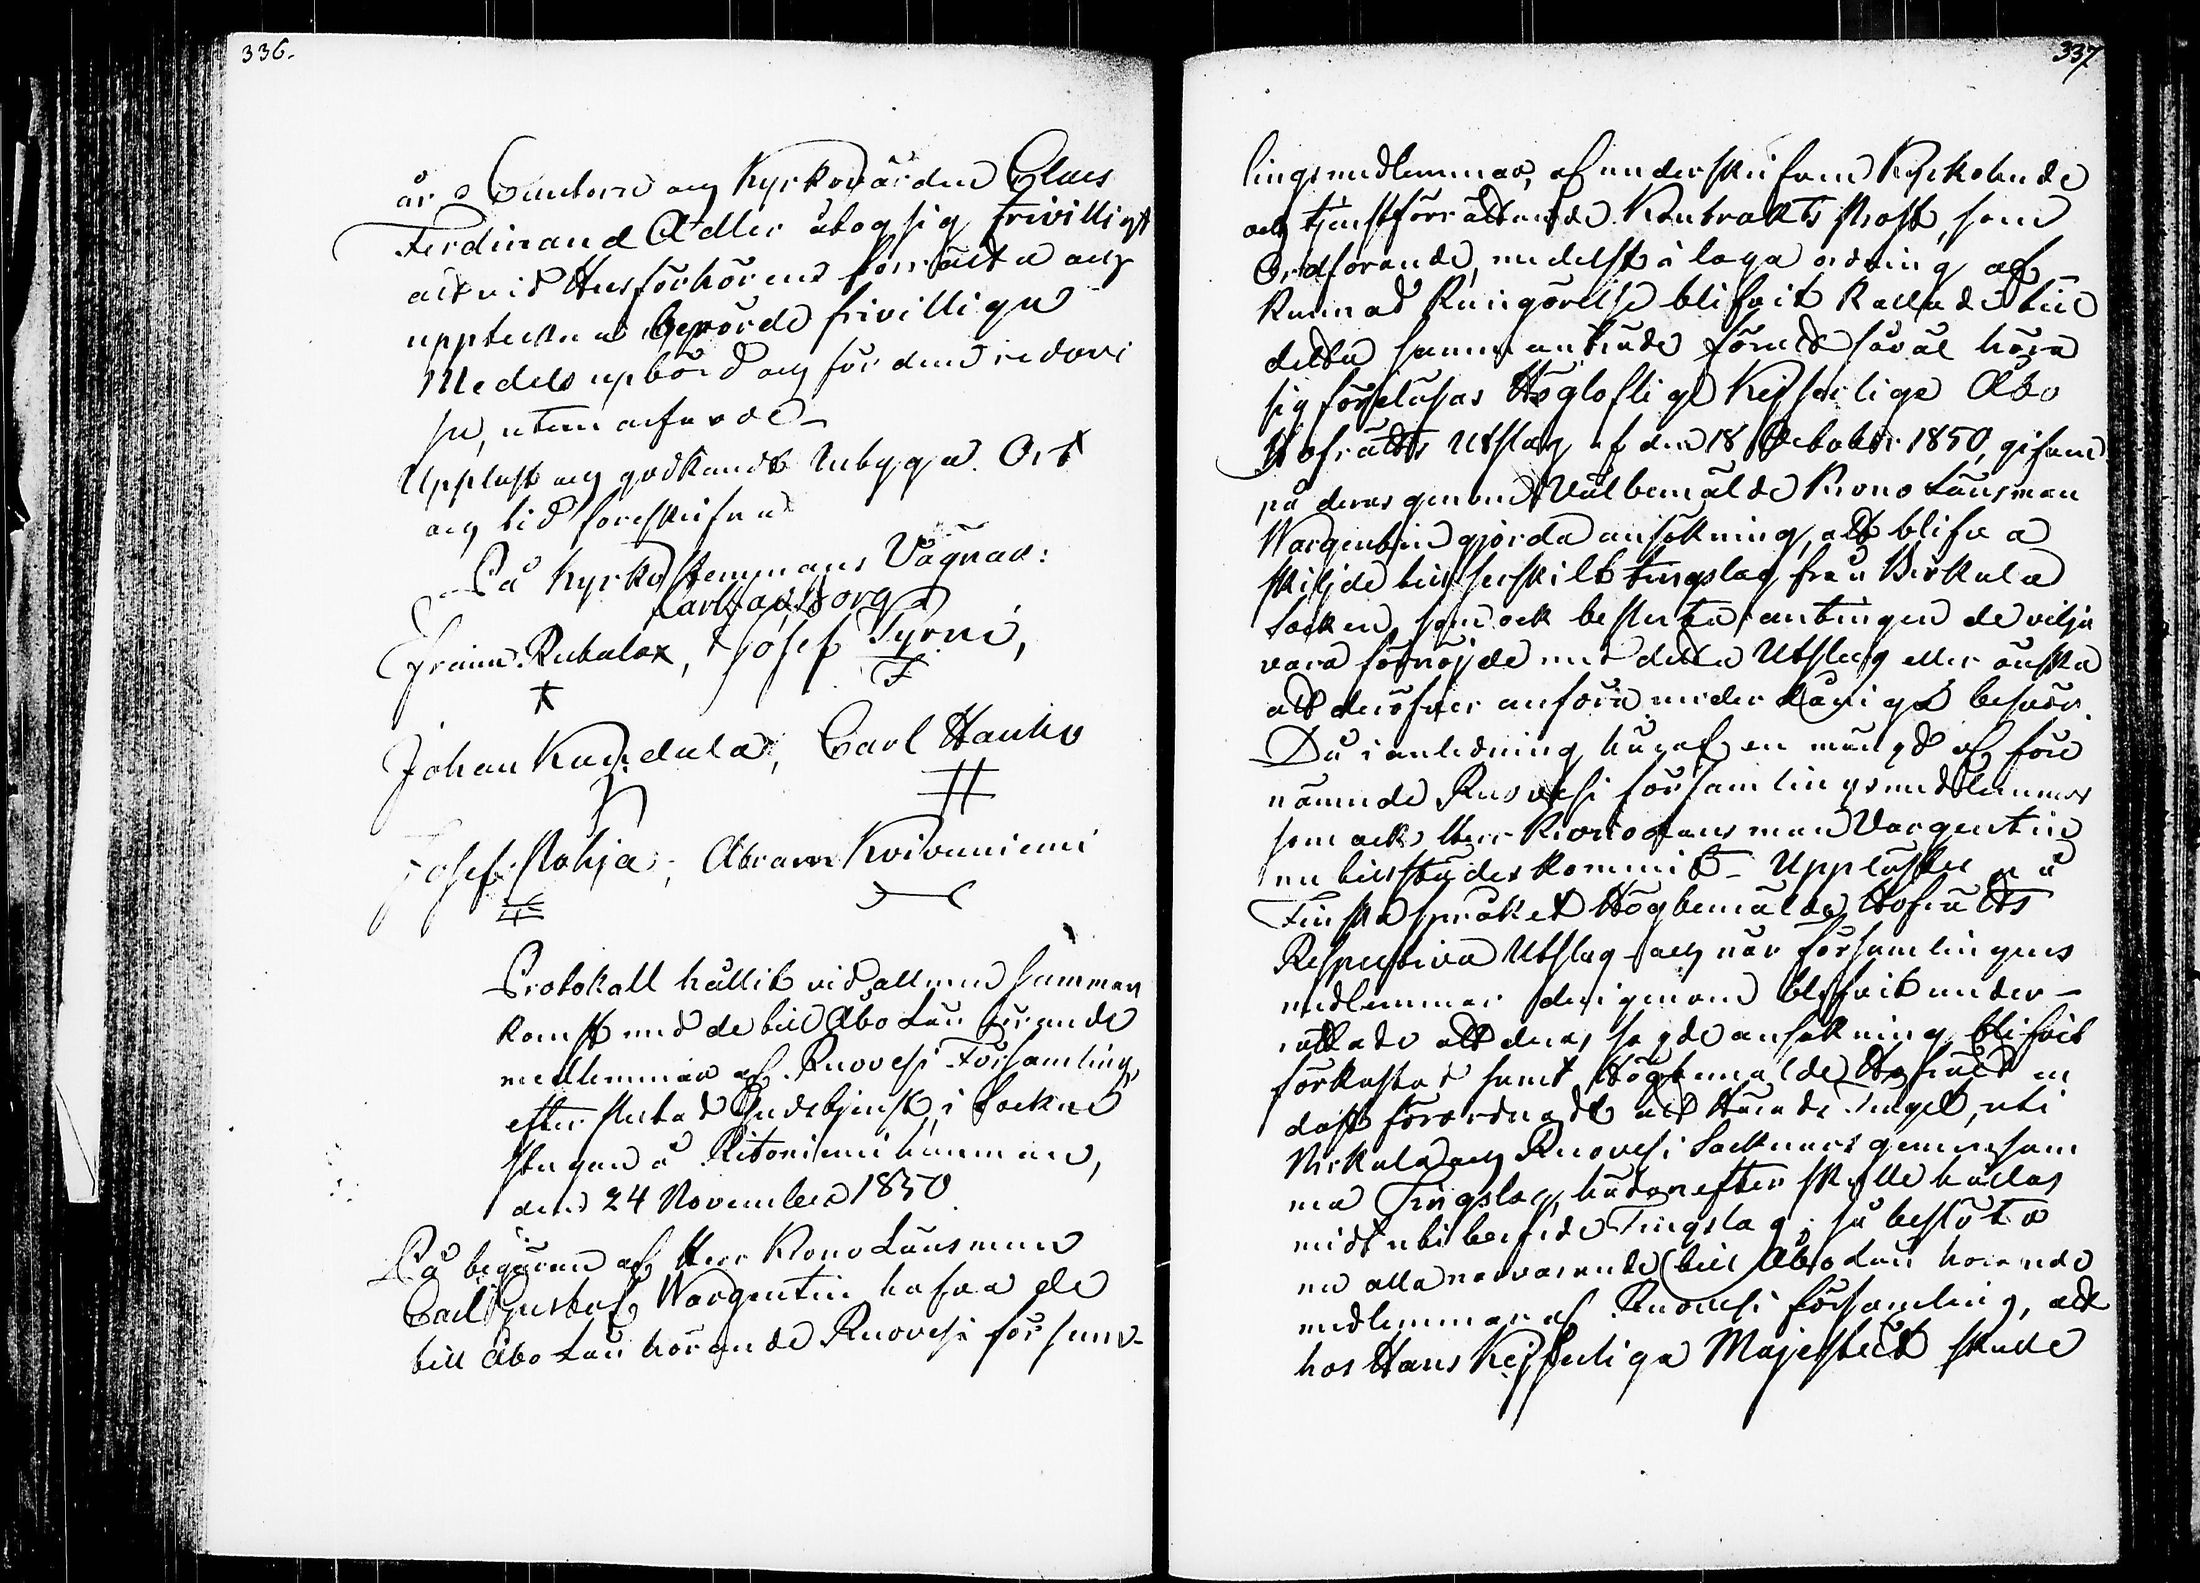 336.
år Cantorn och Kyrkovärden Claes
Ferdinand Adler åtog sig frivilligt
att vid Husförhören förrätta och
uppteckna Gevörde frivilliga
Medels upbörd och för dem redovi
sa, utan arfvode_
Uppläst och godkändt inbyggd Ort
och tid foreskrifvna
På Kyrkostemmans Vägnar:
Carl Gust. Borg
Efraim Ruhala, Josef Tyrni,
Johan Kandula, Carl Hanho
Josef Pohja, Abram Koivuniemi
Protokoll hållit vid allmän samman
komst med de till Åbo Län hörande
medlemmar af Ruovesi Församling,
efter slutad Gudstjenst, i Sockne
stugan å Ritoniemi hemman,
den 24 November 1850
På begäran af Herr Krono Länsman
Carl Gustaf Wargentin hafva de
till Åbo Län hörande Ruovesi försam-
337
lingsmedlemmar, af underskrifven Kyrkoherde
och tjenstförrättande Kontrakts Prost, som
Ordförande, medelst i laga ordning af_
kunnad Kungörelse blifvit kallade till
detta sammanträde för att såväl höra
sig föreläsas Högloflige Kejserlige Åbo
Hofrätts Utslag af den 18 October 1850, gifven
på deras genom Välbemälde Krono Länsman
Wargentin gjorda ansökning, att blifva
skiljde till serskilt tingslag från Birkala
Socken, som ock besluta antingen de vilja
vara förnöjde med detta Utslag eller önska
att deröfver anföra underdånigst besvär.
Då i anledning häraf en mängd af före
nämnde Ruovesi församlingsmedlemmar
som ock Herr Kronolänsman Vargentin
nu tillstädeskommit_ Upplästes på
Finska språket Högbemälde Hofrätts
Respective Utslag och när församlingens
medlemmar derigenom blifvit under-
rättade att deras sagde ansökning blifvit
förkastad samt Högbemälde Hofrätt en
dast förordnadt att Härads Tinget, uti
Birkala och Ruovesi Socknars gemensam
ma Tingslag, hädanefter skulle hållas
midt uti berörde Tingslag; så beslöto
nu alla närvarande till Åbo Län hörande
medlemmar af Ruovesi församling, att
hos Hans Kejserliga Majestät skulle